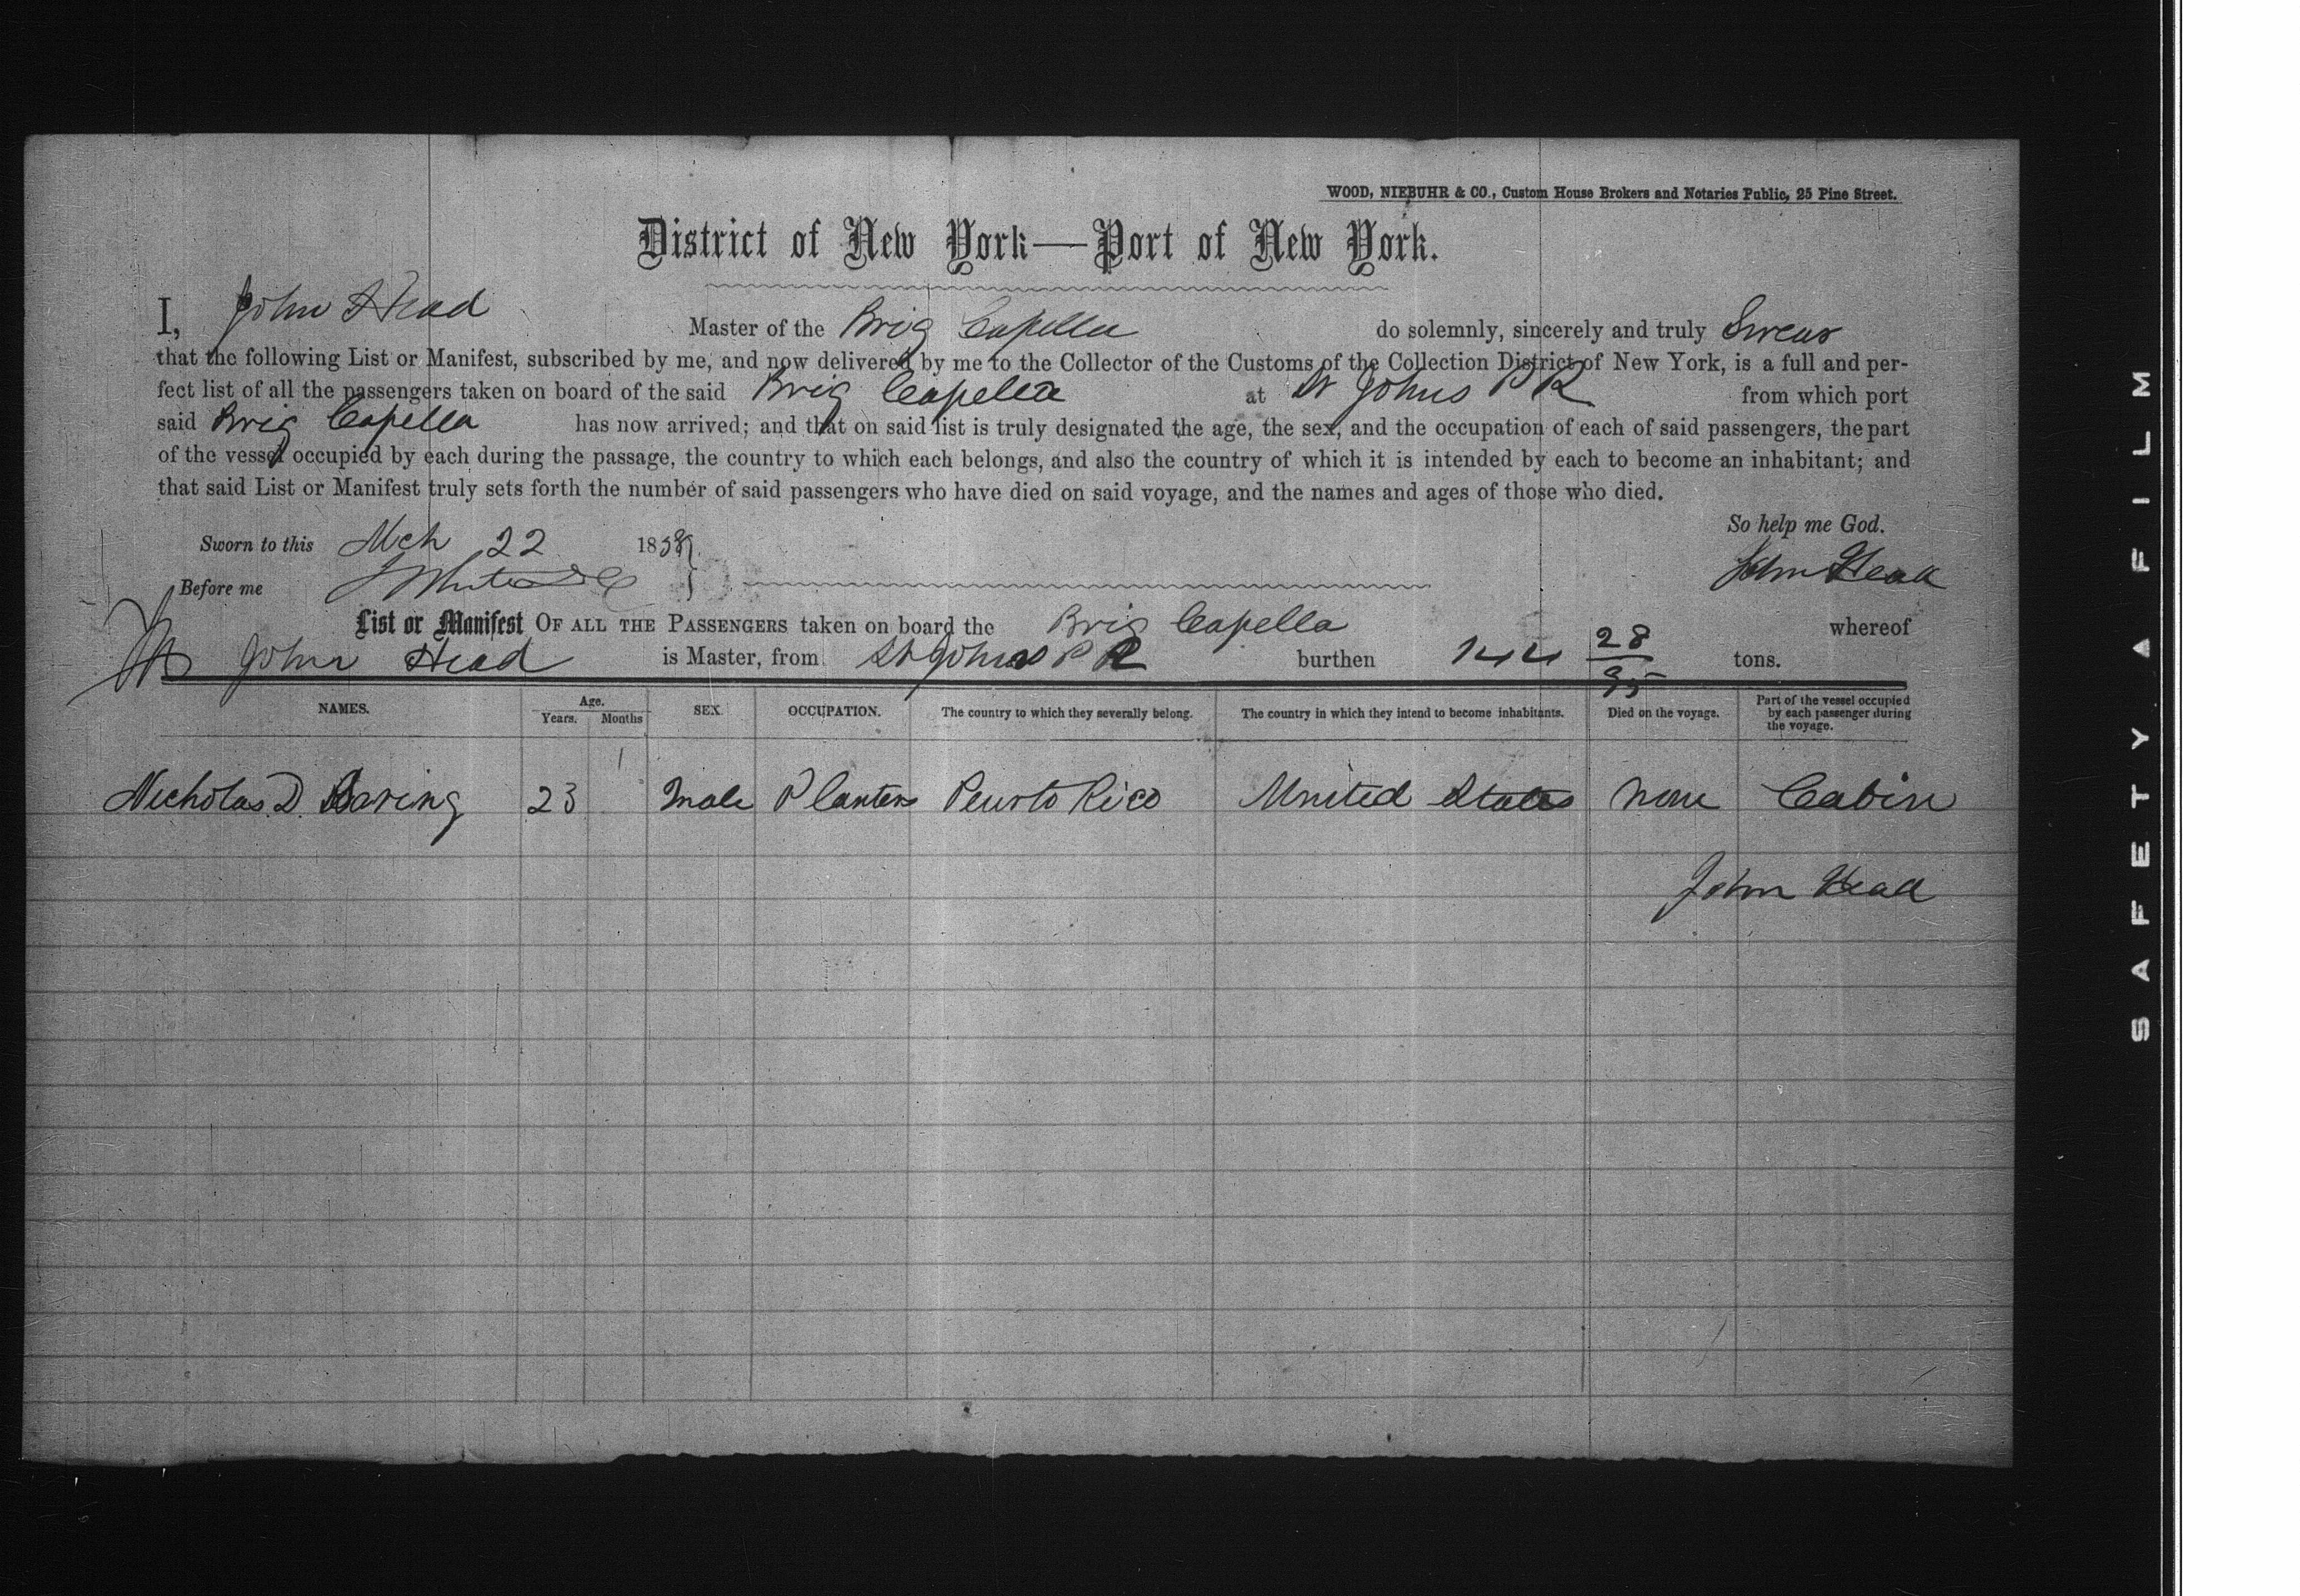 WOOD, NIEBUHR & CO., Custom House Brokers and Notaries Public, 25 Pine Street.
District of New York—Port of New York.
I, John Head Master of the Brig Capella do solemnly, sincerely and truly Swear
that the following List or Manifest, subscribed by me, and now delivered by me to the Collector of the Customs of the Collection District of New York, is a full and per-
fect list of all the passengers taken on board of the said Brig Capella at St Johns P R from which port
said Brig Capella has now arrived; and that on said list is truly designated the age, the sex, and the occupation of each of said passengers, the part
of the vessel occupied by each during the passage, the country to which each belongs, and also the country of which it is intended by each to become an inhabitant; and
that said List or Manifest truly sets forth the number of said passengers who have died on said voyage, and the names and ages of those who died.
So help me God.
Sworn to this Mch 22 18
John Head
Before me
List or Manifest OF ALL THE PASSENGERS taken on board the Brig Capella whereof
John Head is Master, from St Johns P R burthen 144 28/95 tons.
NAMES. Age. Years. Months SEX. OCCUPATION. The country to which they severally belong. The country in which they intend to become inhabitants. Died on the voyage. Part of the vessel occupied by each passenger during the voyage.
Nicholas D. Boring 23 Male Planter Peurto Rico United States None Cabin
John Head
SAFETY A FILM